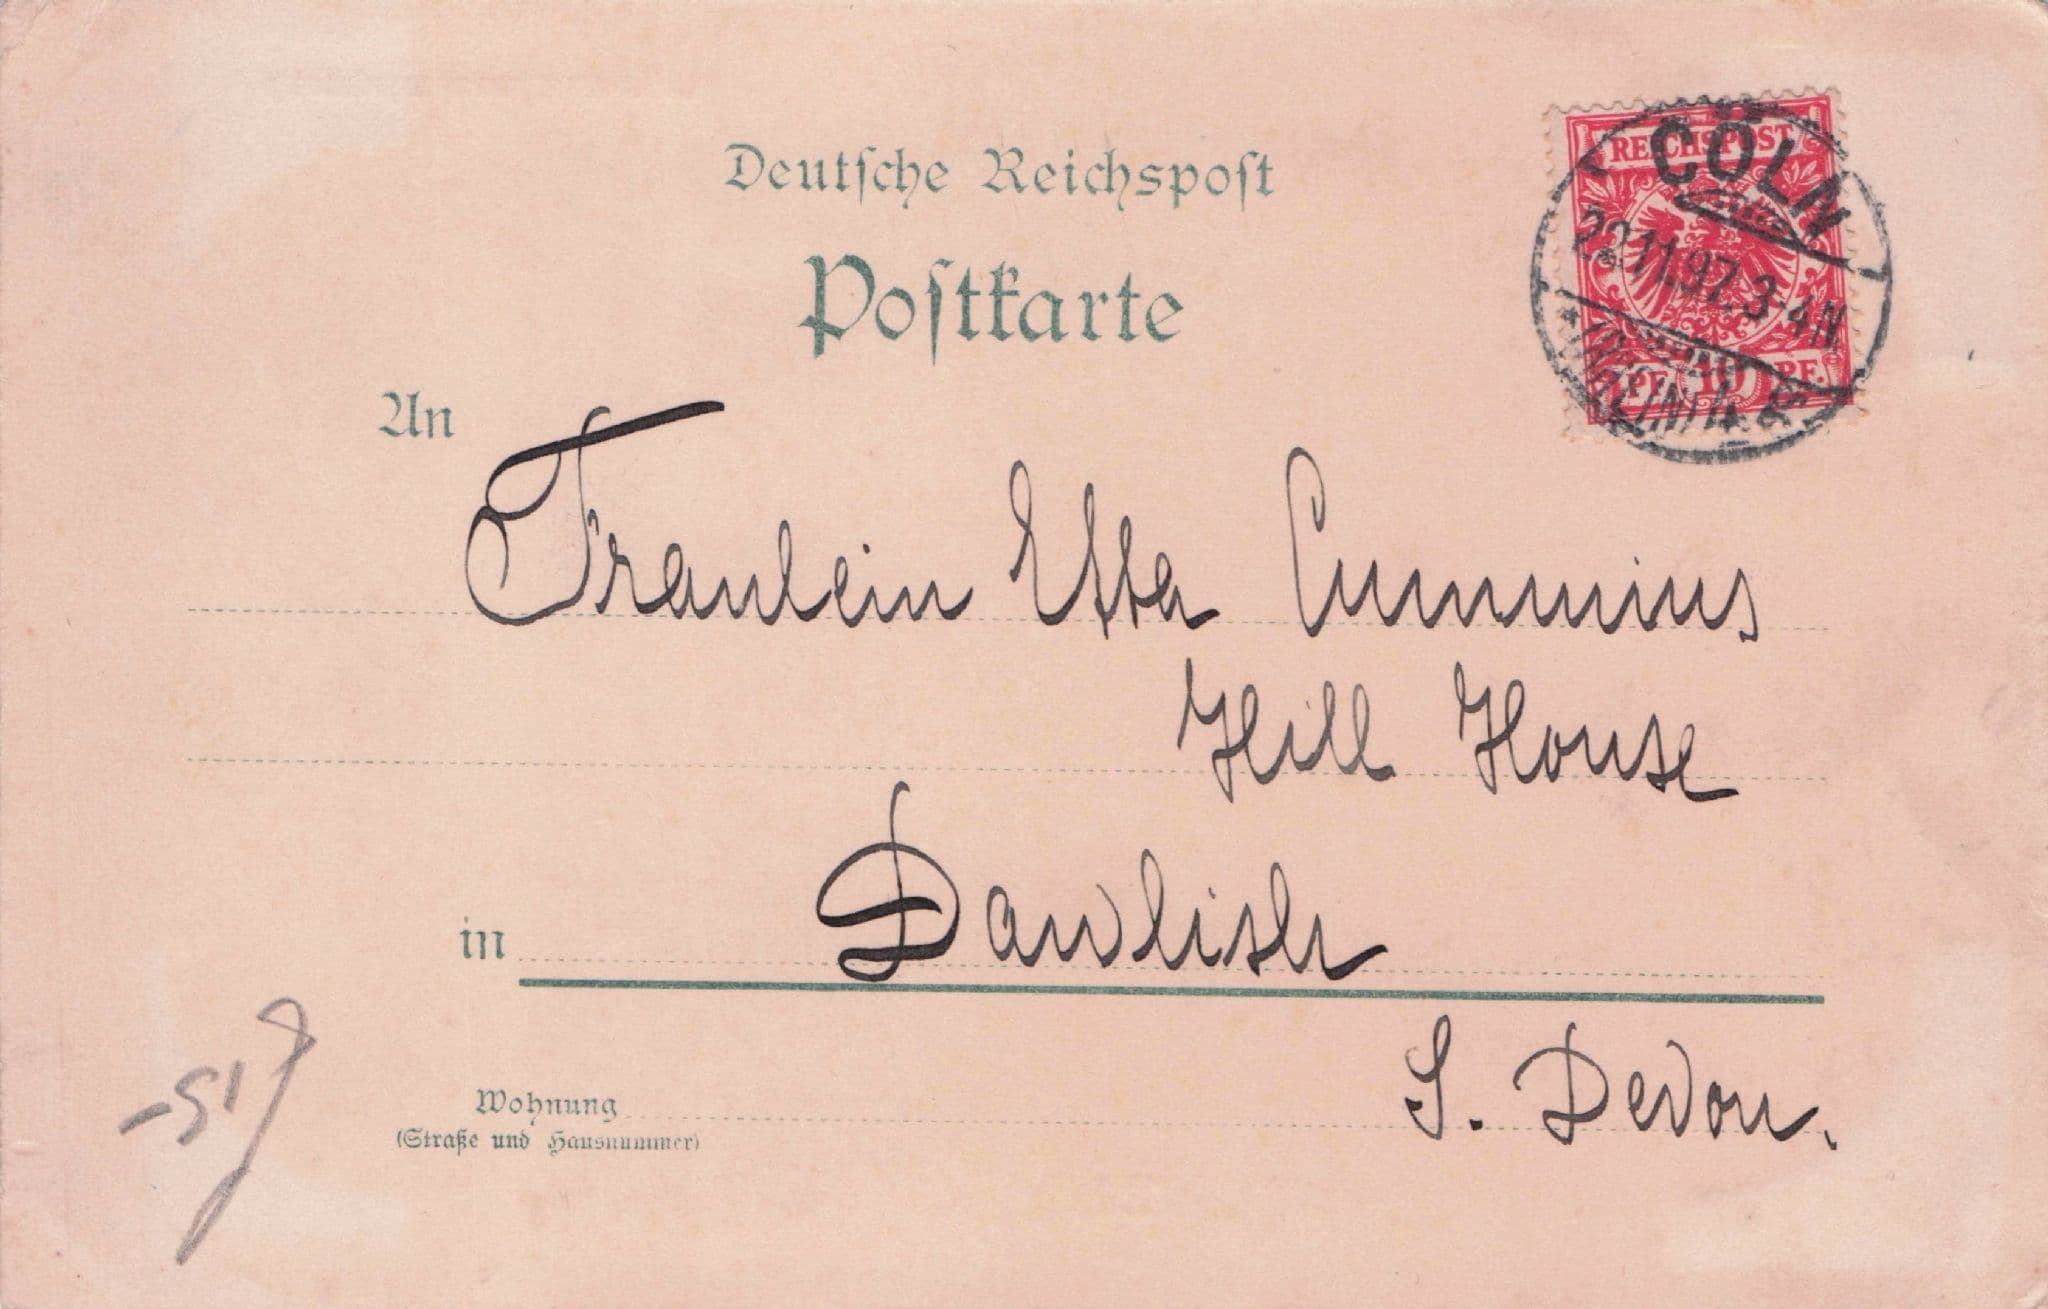 Deutsche Reichspost
Postkarte
REICHSPOST
CÖLN
11.97.3-4N
PF. 10 PF.
An
Fraulein Etta Cummins
Hill House
in Dawlish
S. Devon.
Wohnung
(Straße und Hausnummer)